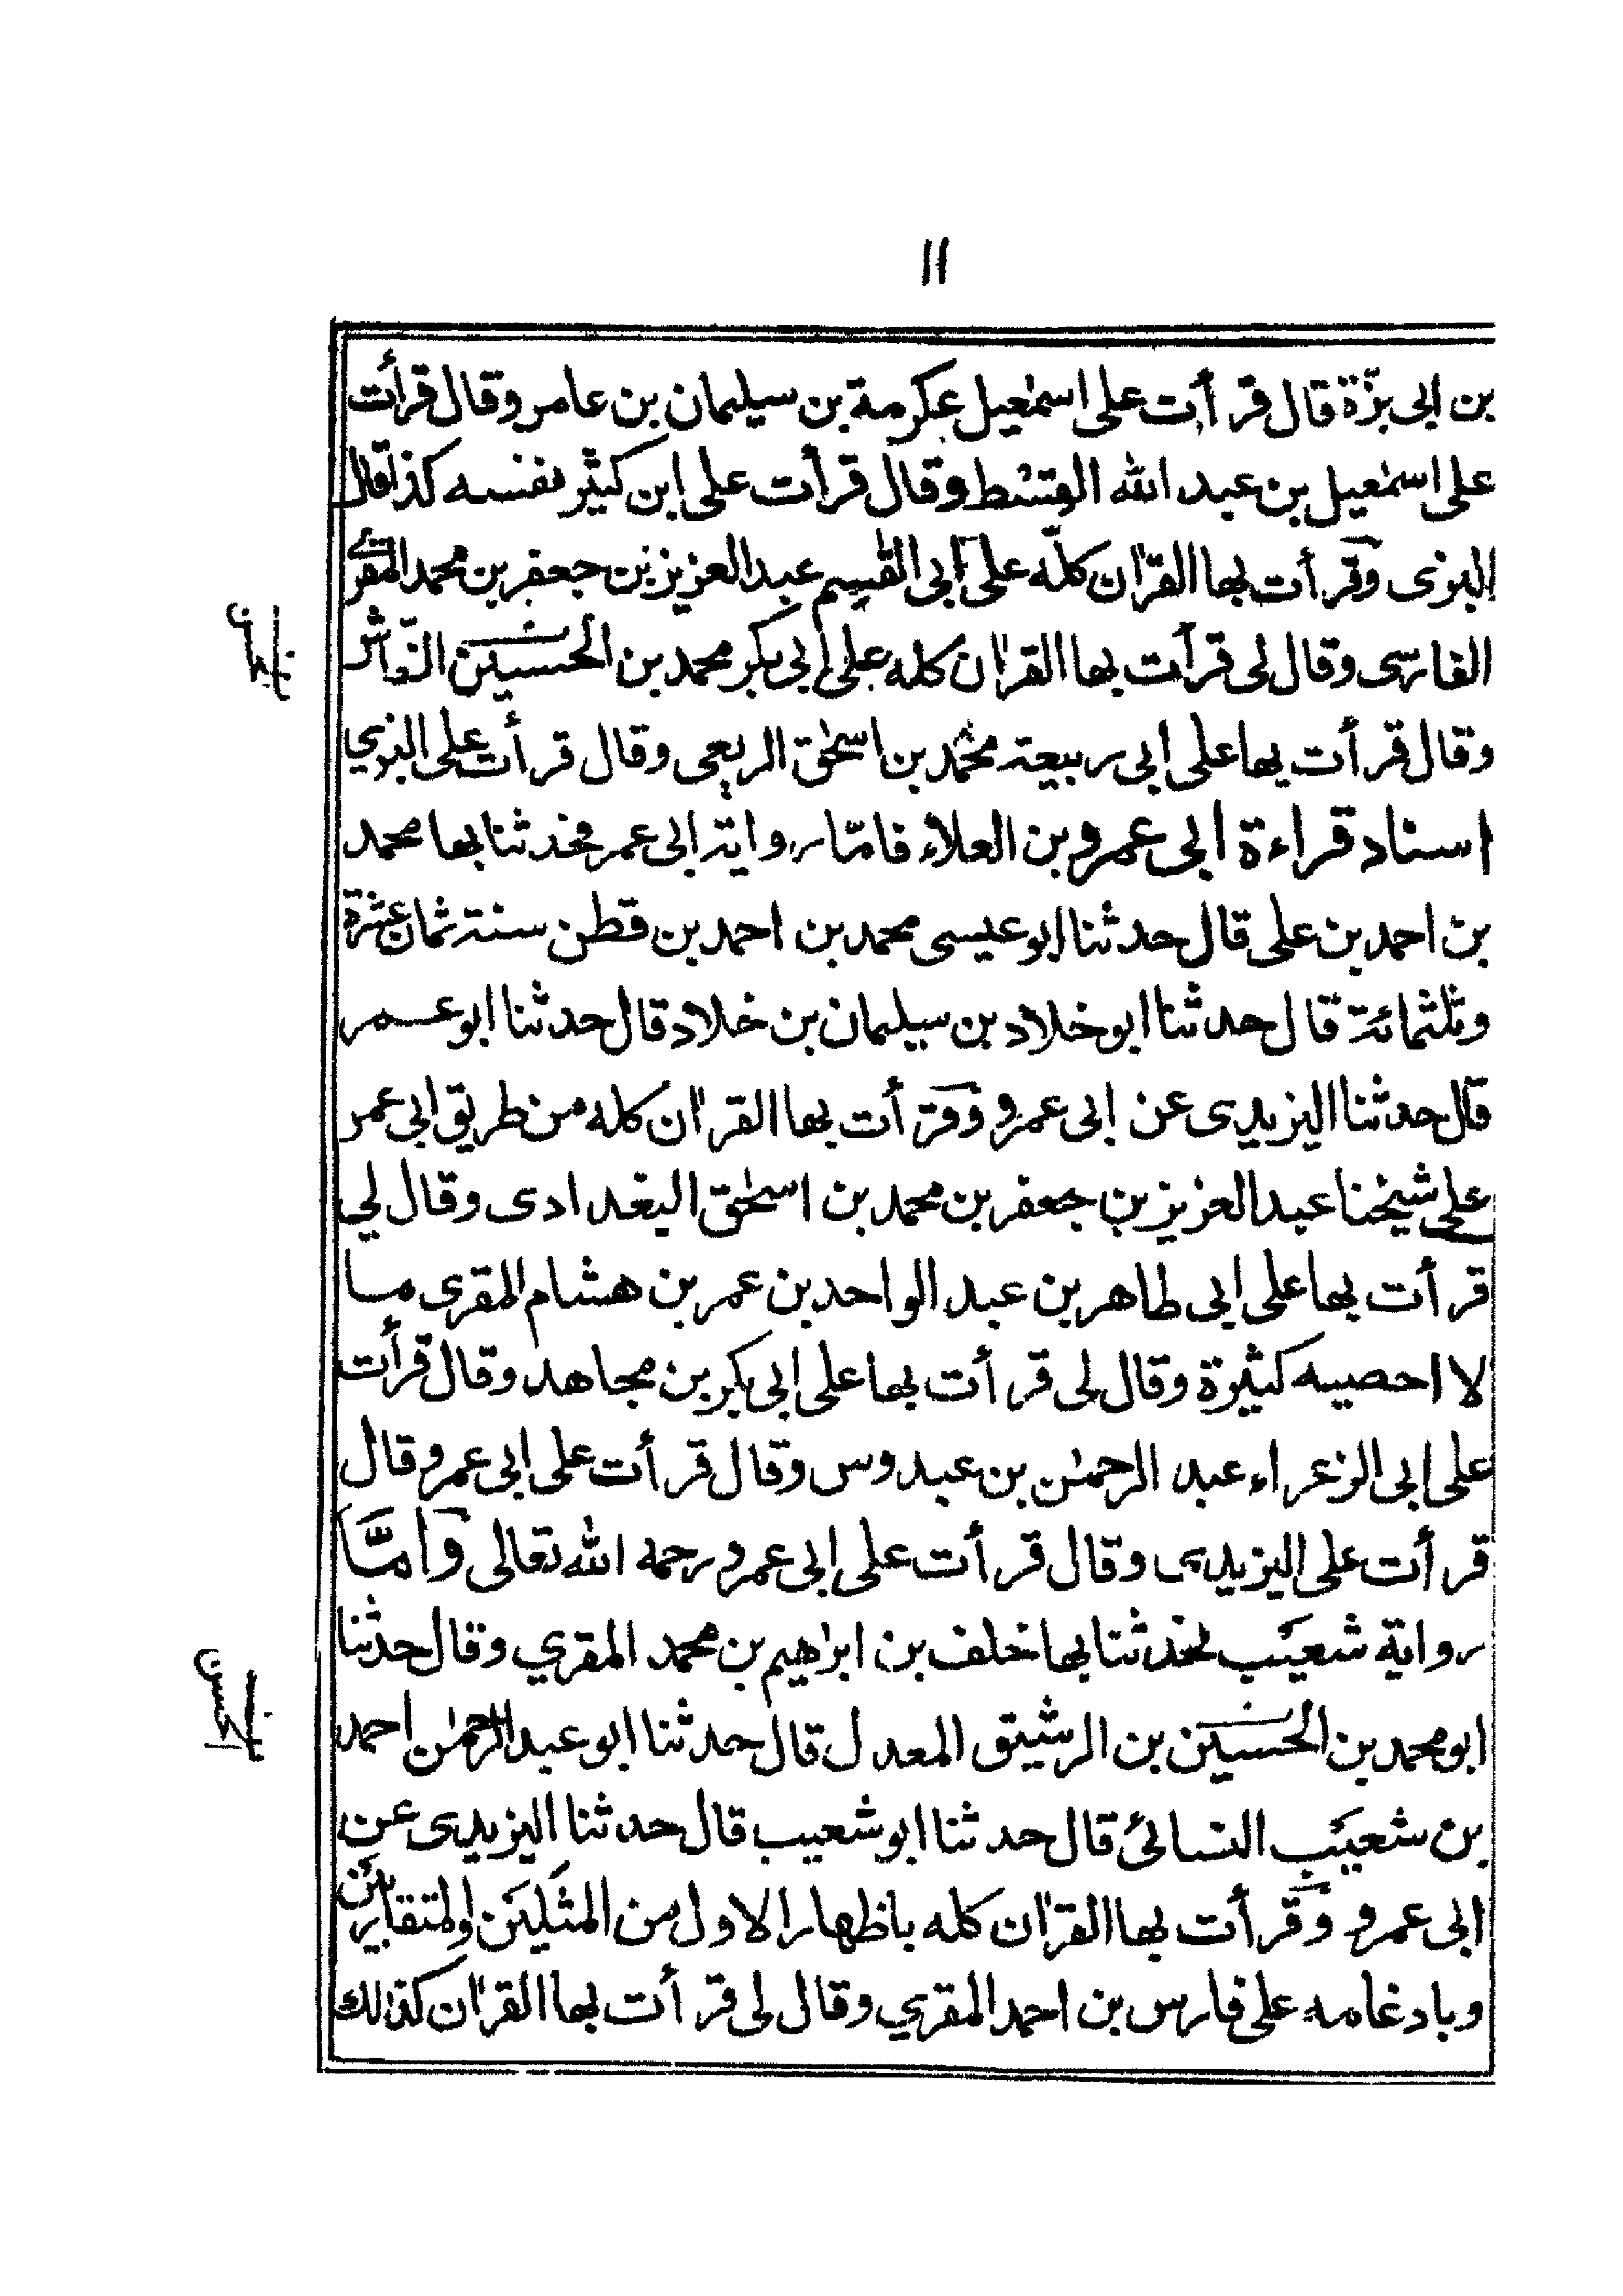 ١١
بن ابى بزّة قال قرأت على اسمٰعيل عكرمة بن سيليمان بن عامر وقال قرأت
على اسمٰعيل بن عبد الله القسط وقال قرأت على ابن كثير نفسه كذا قال
البزى وقرأت بها القرٰان كلّه على ابى القٰسم عبد العزيز بن جعفر بن محمد المقرئ
الفارسى وقال لى قرأت بها القرٰان كله على ابى بكر محمد بن الحسين النقاش
وقال قرأت بها على ابى ربيعة محمد بن اسحٰق الربعى وقال قرأت على البزي
اسناد قراءة ابى عمرو بن العلاء فامّا رواية ابى عمر فحدثنا بها محمد
بن احمد بن على قال حدثنا ابو عيسى محمد بن احمد بن قطن سنة ثمان عشرة
وثلثمائة قال حدثنا ابو خلاد بن سيليمان بن خلاد قال حدثنا ابو عمر
قال حدثنا اليزيدى عن ابى عمرو وقرأت بها القرٰان كله من طريق ابى عمر
على شيخنا عبد العزيز بن جعفر بن محمد بن اسحٰق البغدادى وقال لي
قرأت بها على ابى طاهر بن عبد الواحد بن عمر بن هشام المقرى ما
لا احصيه كثيرة وقال لى قرأت بها على ابى بكر بن مجاهد وقال قرأت
على ابى الزعراء عبد الرحمٰن بن عبدوس وقال قرأت على ابى عمرو قال
قرأت على اليزيدي وقال قرأت على ابى عمرو رحمه الله تعالى وَامَّا
رواية شعيب فحدثنا بها خلف بن ابرٰهيم بن محمد المقري وقال حدثنا
ابو محمد بن الحسين بن الرشيق المعدل قال حدثنا ابو عبد الرحمٰن احمد
بن شعيب النسائ قال حدثنا ابو شعيب قال حدثنا اليزيدى عن
ابى عمرو وقرأت بها القرٰان كله باظهار الاول من المثلين والمتقاربين
وبادغامه على فارس بن احمد المقري وقال لى قرأت بها القرٰان كذلك